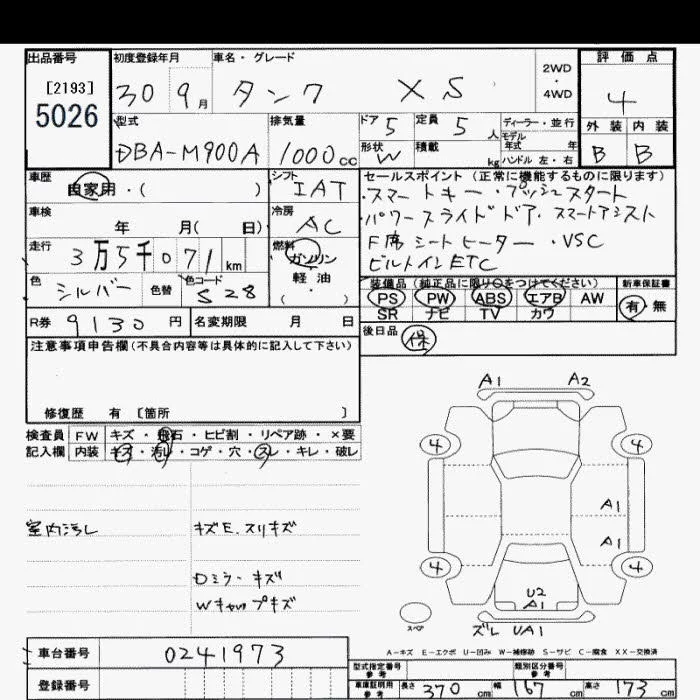 出品番号 初度登録年月 車名・グレード 評価点
[2193] 2WD
5026 30 9月 タンク XS 4WD 4
型式 排気量 ドア 5 定員 5人 ディーラー・並行 外装 内装
モデル年式 年
DBA-M900A 1000cc 形状 W 積載 kg ハンドル 左・右 B B
車歴 シフト セールスポイント(正常に機能するものに限ります)
自家用・( ) IAT ・スマートキー・プッシュスタート
車検 冷房 ・パワースライドドア・スマートアシスト
年 月( 日) AC F席シートヒーター・VSC
走行 燃料 ビルトインETC
3万5千071km ガソリン
色 色替 色コード 軽油 装備品(純正品に限り○をつけてください) 新車保証書
シルバー S28 ・( ) PS PW ABS エアB AW 有・無
SR ナビ TV カワ
R券 9130円 名変期限 月 日 後日品 保
注意事項申告欄(不具合内容等は具体的に記入して下さい)
修復歴 有 [箇所 ]
A1 A2
検査員 FW キズ・飛石・ヒビ割・リペア跡・×要
記入欄 内装 キズ・汚レ・コゲ・穴・スレ・キレ・破レ
4 4
A1
室内汚レ キズE.スリキズ
A1
4 4
Dミラーキズ
U2
Wキャップキズ A1
スペア ズレ UA1
車台番号 0241973 A-キズ E-エクボ U-凹み W-補修跡 S-サビ C-腐食 XX-交換済
登録番号 型式指定番号 参考 類別区分番号 参考
車庫証明用 参考 長さ 370cm 幅 167cm 高さ 173cm